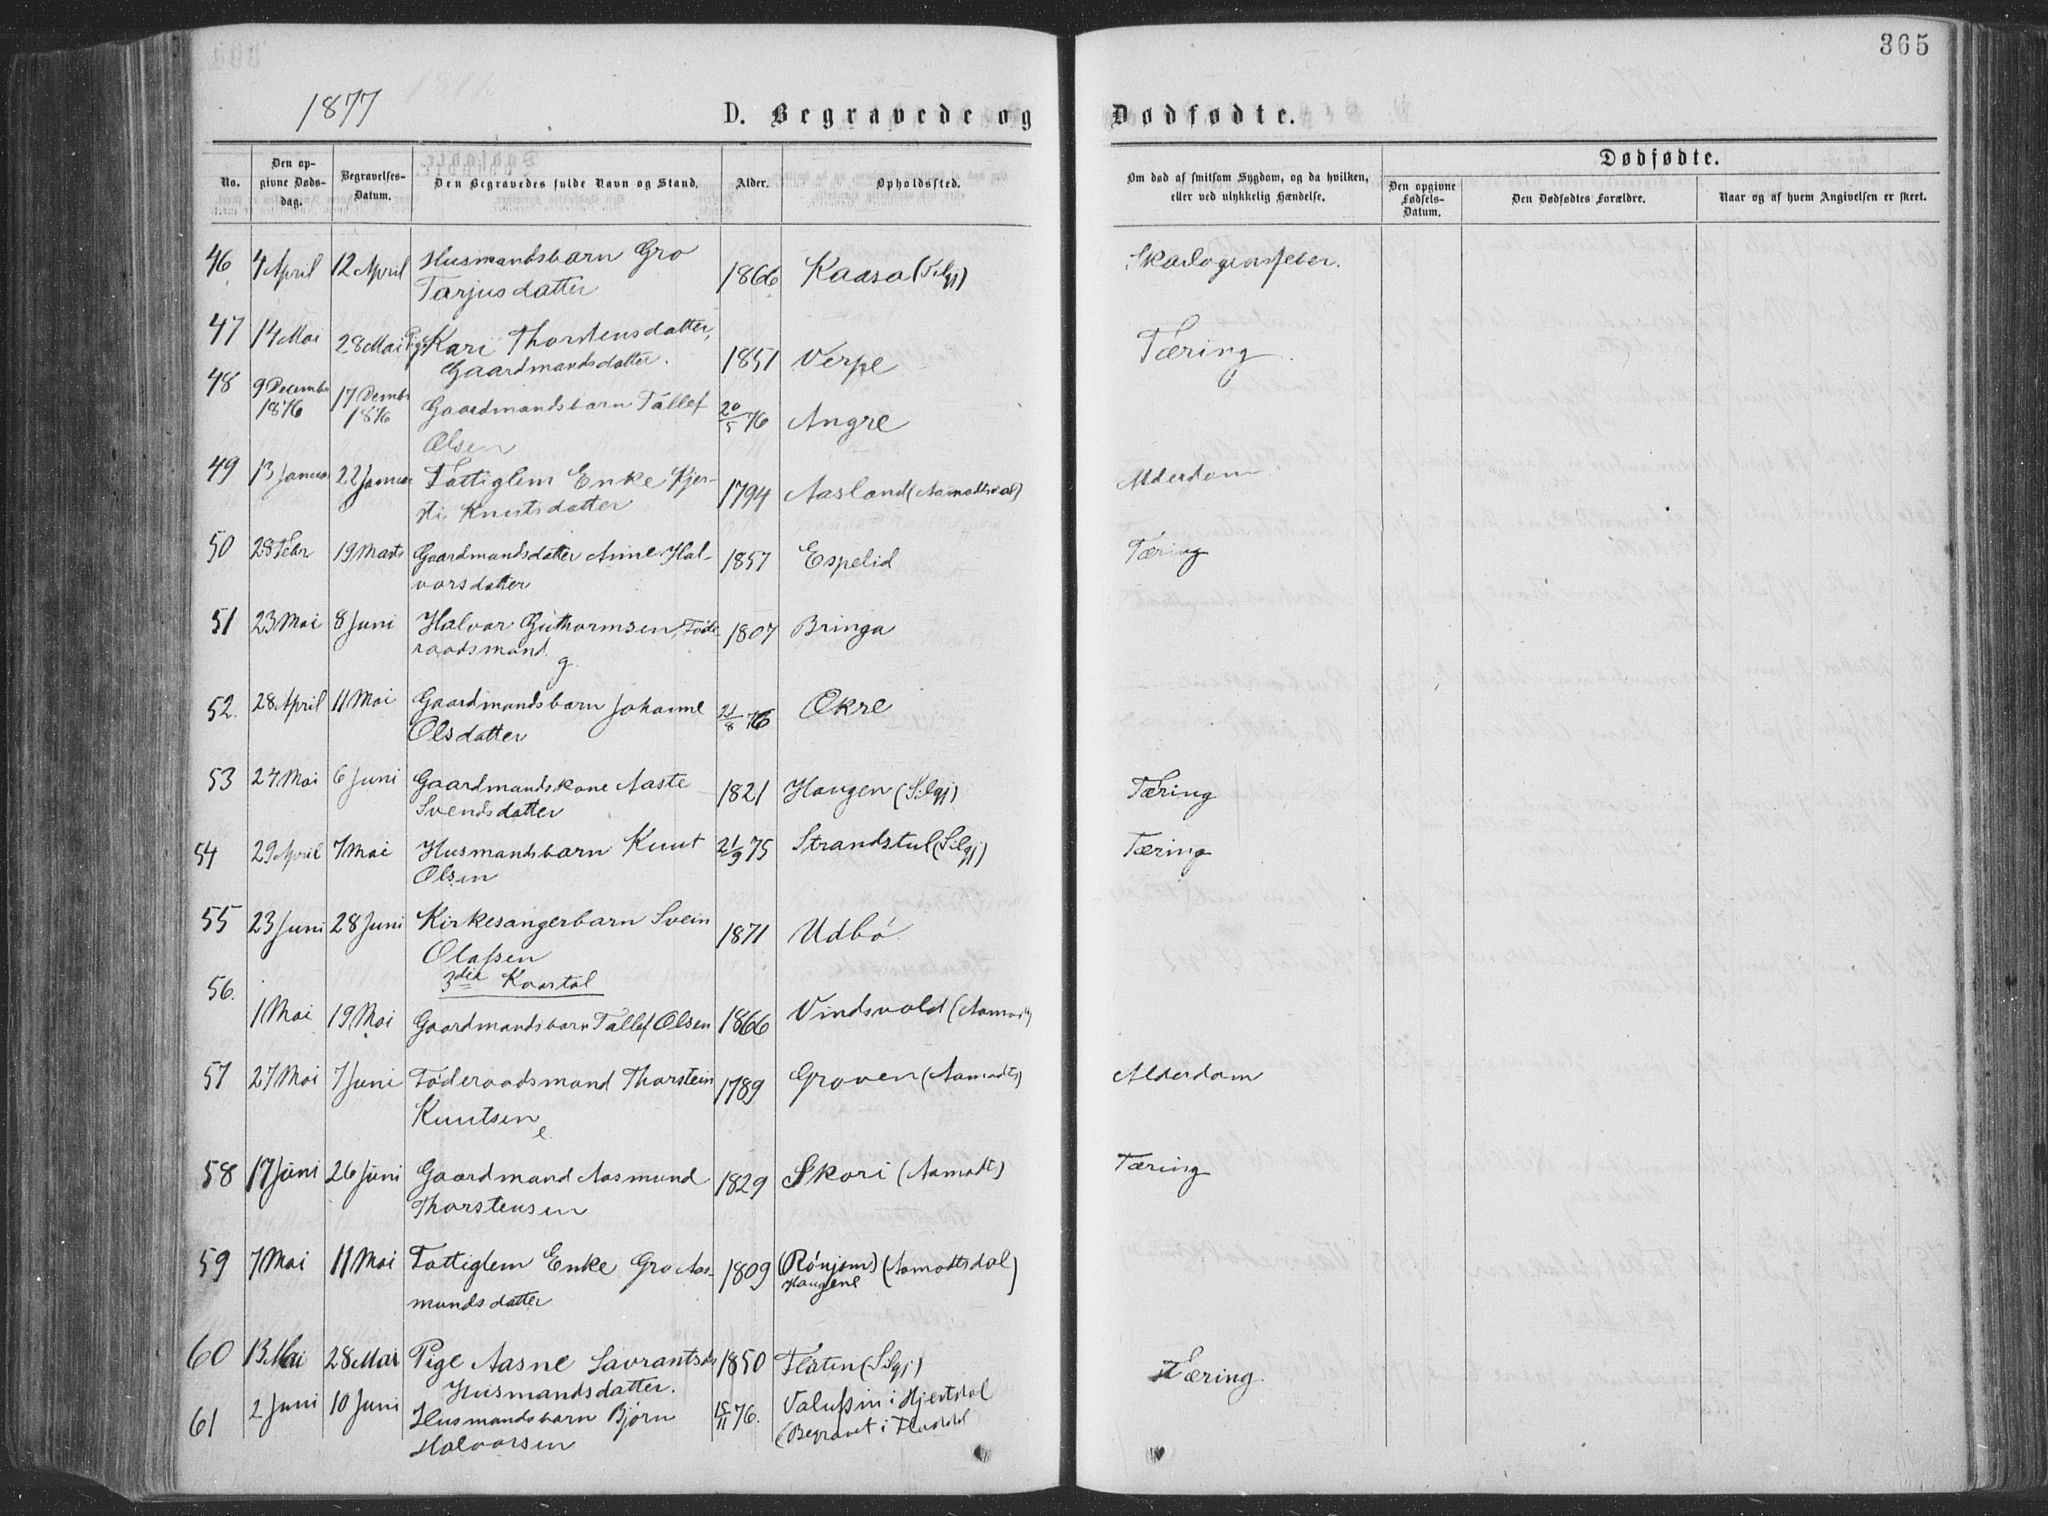 365
1877
D. Begravede og Dødfødte.
No.
Den opgivne Dødsdag.
Begravelses-Datum.
Den Begravedes fulde Navn og Stand.
Alder.
Opholdssted.
Om død af smitsom Sygdom, og da hvilken, eller ved ulykkelig Hændelse.
Dødfødte.
Den opgivne Fødsels-Datum.
Den Dødfødtes Forældre.
Naar og af hvem Angivelsen er skeet.
46 4 April 12 April Husmandsbarn Gro 1866 Kaasa (Silgj)
Tarjusdatter
47 14 Mai 28 Mai Pige Kari Thorstensdatter, 1851 Verpe Tæring
Gaardmandsdatter.
48 9 Decembr 1876 17 Dembr 1876 Gaardmandsbarn Tallef 20/5 76 Angre
Olsen
49 13 Januar 22 Januar Fattiglem Enke Kjer- 1794 Aasland (Aamodtsdal) Alderdom
sti Knutsdatter
50 28 Febr 19 Marts Gaardmandsdatter Anne Hal- 1857 Espelid Tæring
vorsdatter
51 23 Mai 8 Juni Halvor Guthormsen, Føde- 1807 Bringa
raadsmand
g
52. 28 April 11 Mai Gaardmandsbarn Johanne 21/8 76 Økre
Olsdatter
53 24 Mai 6 Juni Gaardmandskone Aaste 1821 Haugen (Silgj) Tæring
Svendsdatter
54 29 April 7 Mai Husmandsbarn Knut 21/9 75 Strandstul (Silgj) Tæring
Olsen
55 23 Juni 28 Juni Kirkesangerbarn Svein 1871 Udbö
Olafsen
3die Kvartal
56. 1 Mai 19 Mai Gaardmandsbarn Tallef Olsen 1866 Vindsvold (Aamodt)
57 27 Mai 7 Juni Föderaadsmand Thorstein 1789 Groven (Aamodts) Alderdom
Knutsen
e
58 17 Juni 26 Juni Gaardmand Aasmund 1829 Skori (Aamodt) Tæring
Thorstensen
59 7 Mai 11 Mai Fattiglem Enke Gro Aas- 1809 (Rönjom) (Aamodtsdal)
mundsdatter Haugene
60 13 Mai 28 Mai Pige Aasne Lavrantsdr 1850 Flaten (Silgj) Tæring.
Husmandsdatter.
61 2 Juni 10 Juni Husmandsbarn Bjørn 15/11 76. i Hjertdal
Halvorsen (Begravet i